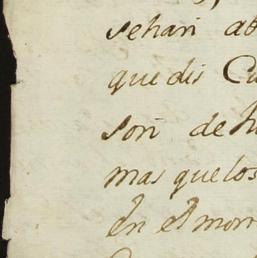 sehan
que dis
son de
mas que los
en el mor